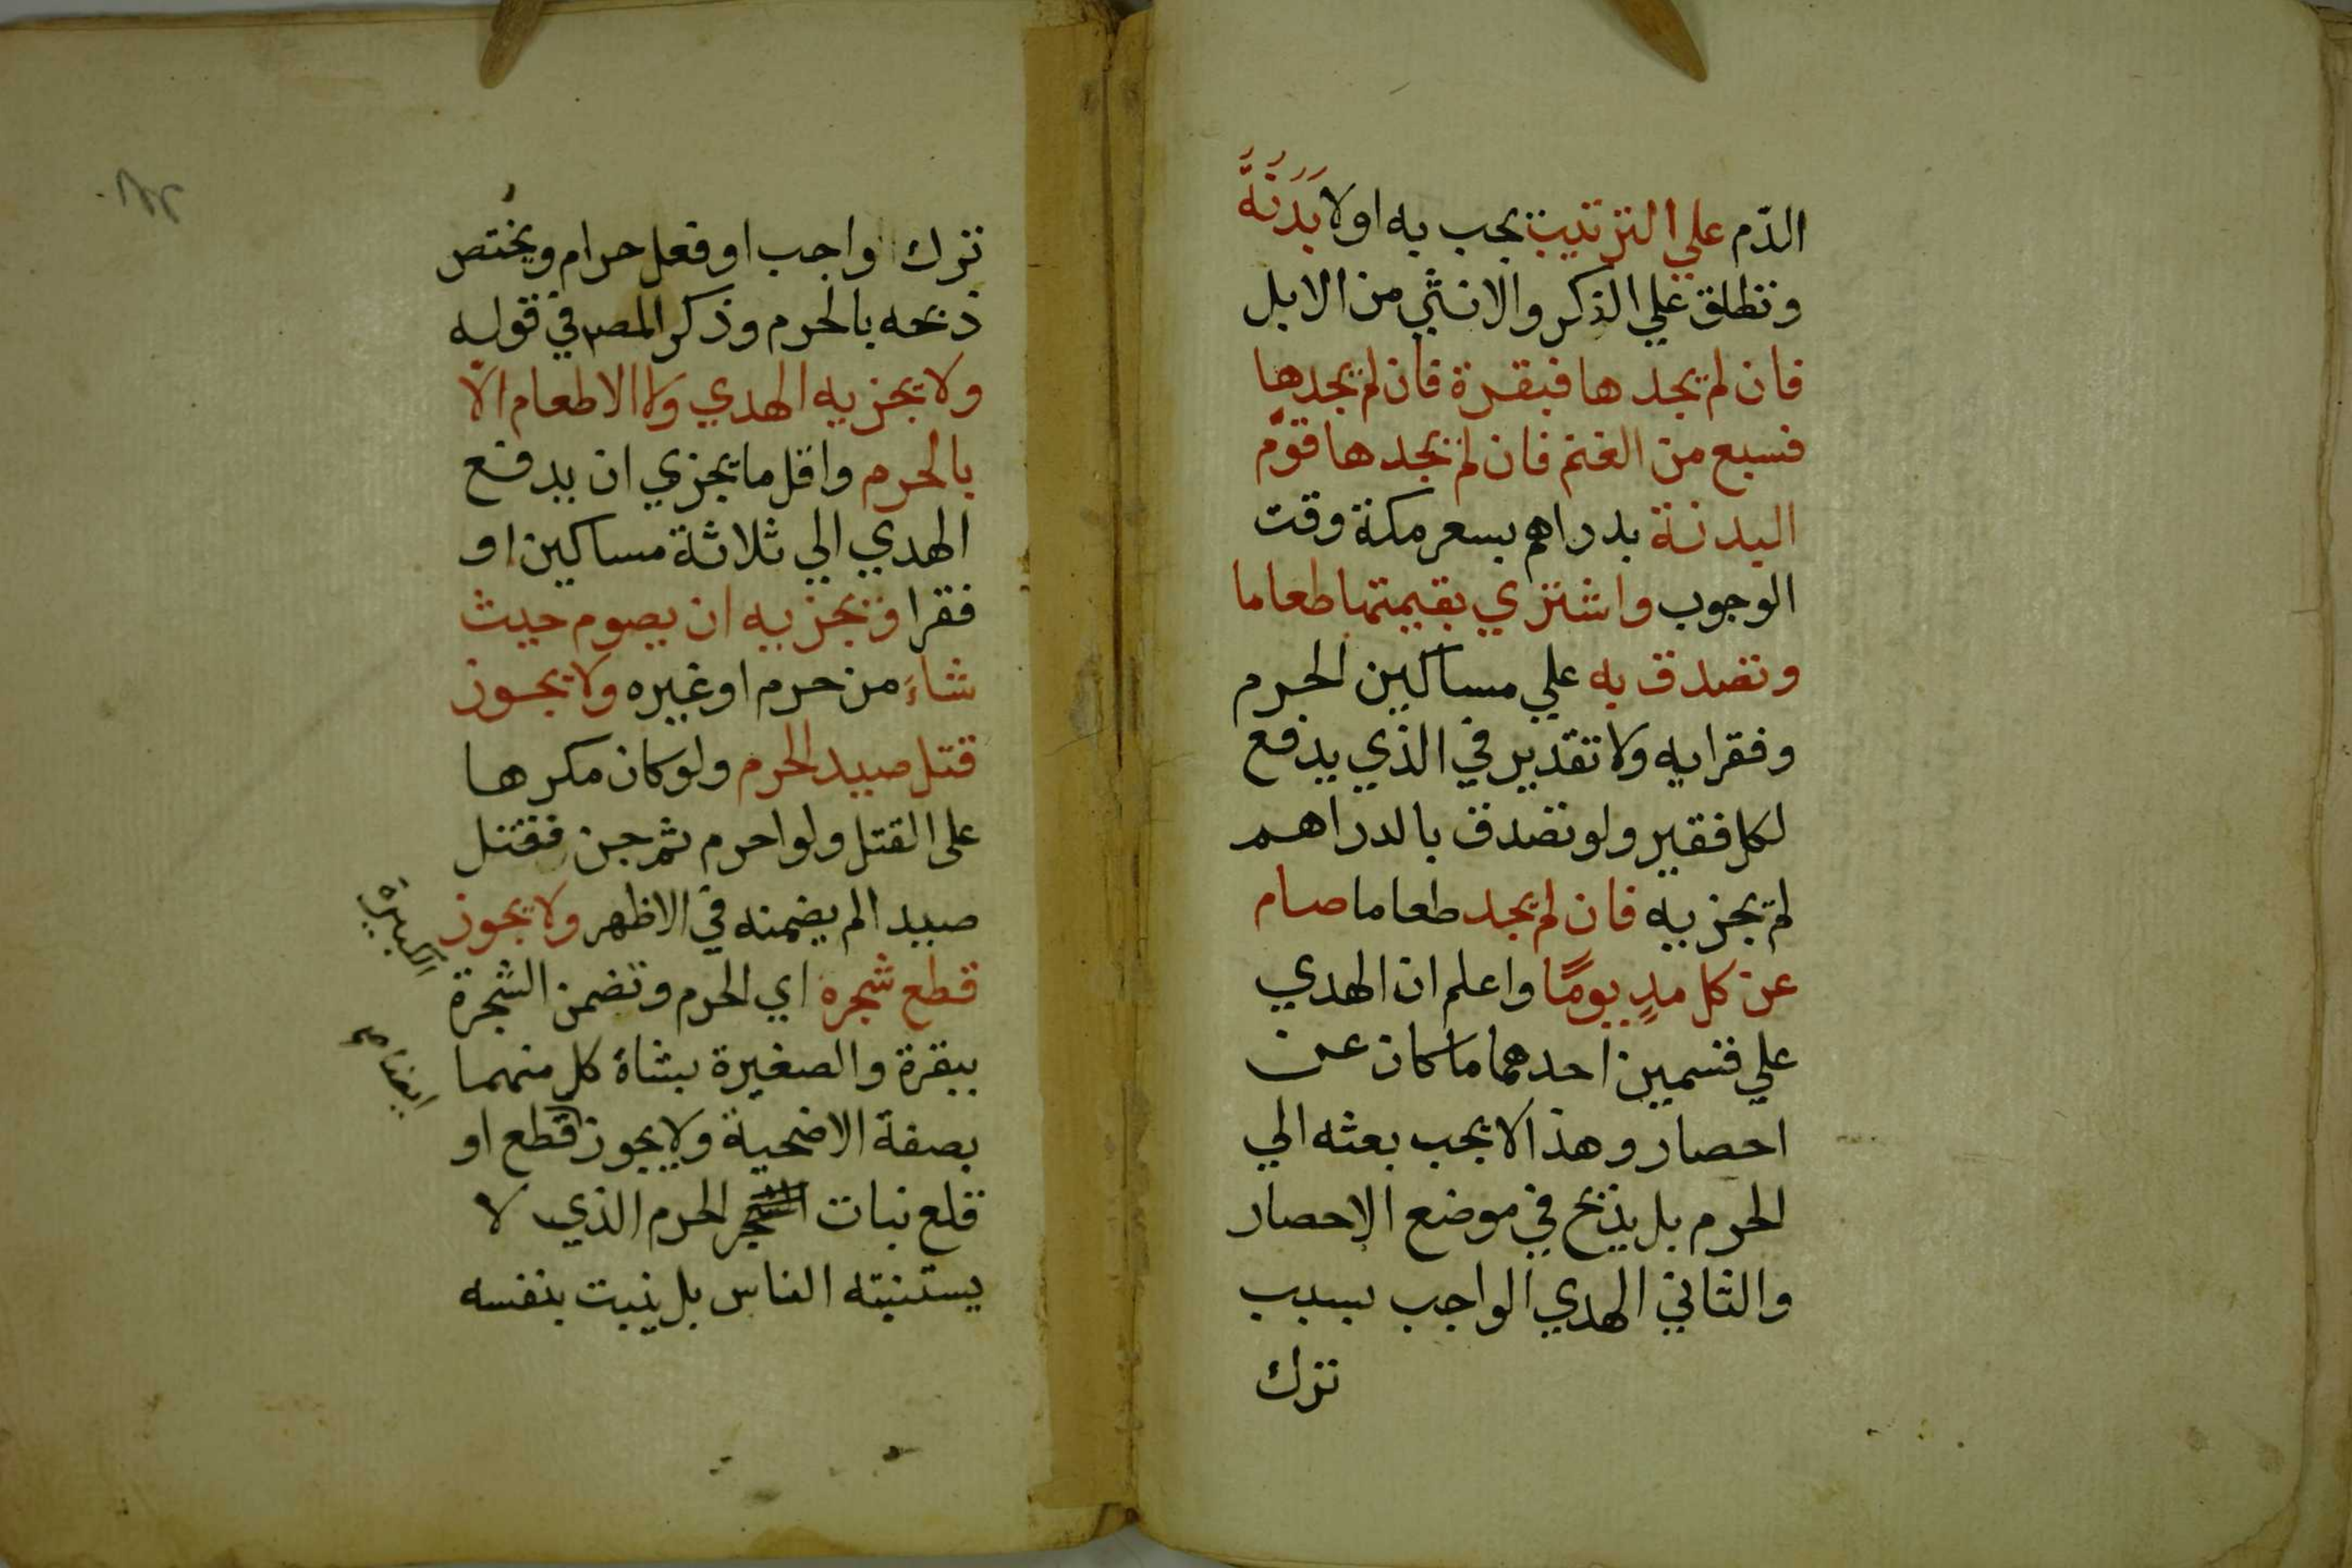 الدّم علي الترتيب يجب به اولا بَدَنَةً
وتطلق علي الذكر والانثي من الابل
فان لم يجدها فبقرة فان لم يجدها
فسبع من الغنم فان لم يجدها قوّم
البدنة بدراهم بسعر مكة وقت
الوجوب واشتري بقيمتها طعاما
وتصدق به علي مساكين الحرم
وفقرايه ولا تقدير في الذي يدفع
لكل فقير ولو تصدق بالدراهم
لم يجزيه فان لم يجد طعاما صام
عن كل مدٍ يومًا واعلم ان الهدي
علي قسمين احدهما ما كان عن
احصار وهذا لا يجب بعثه الي
الحرم بل يذبح في موضع الاحصار
والثاني الهدي الواجب بسبب
ترك
ترك واجب او فعل حرام ويختص
ذبحه بالحرم وذكر المصـ في قوله
ولا يجزيه الهدي ولا الاطعام الّا
بالحرم واقل ما يجزي ان يدفع
الهدي الي ثلاثة مساكين او
فقرا ويجزيه ان يصوم حيث
شاءَ من حرم او غيره ولا يجوز
قتل صيد الحرم ولو كان مكرها
على القتل ولو احرم ثم جن فقتل
صيدا لم يضمنه في الاظهر ولا يجوز
قطع شجره اي الحرم وتضمن الشجرة
الكبيرة
ببقرة والصغيرة بشاة كل منهما
بصفة الاضحية ولا يجوز قطع او
ايضا
قلع نبات الحرم الذي لا
يستنبته الناس بل ينبت بنفسه